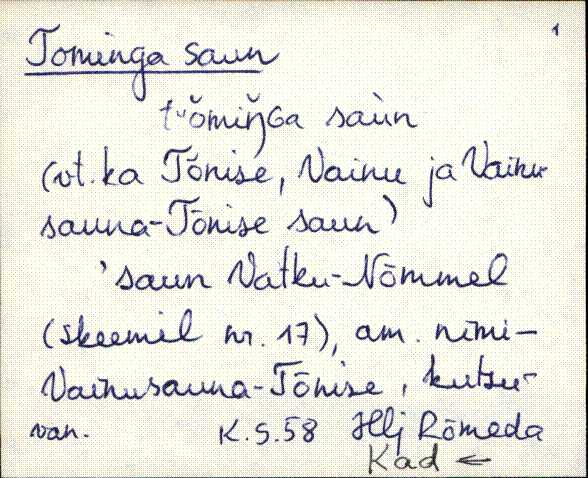 1
Tominga saun
tᵘŏmiŋ̆Ga saùn
(vt. ka Tõnise, Vainu ja Vainu-
sauna-Tõnise saun)
'saun Vatku-Nõmmel
(skeemil nr. 17), am. nimi -
Vainusauna-Tõnise, kutsu-
van. K.S.58 Hlj Rõmeda
Kad ←